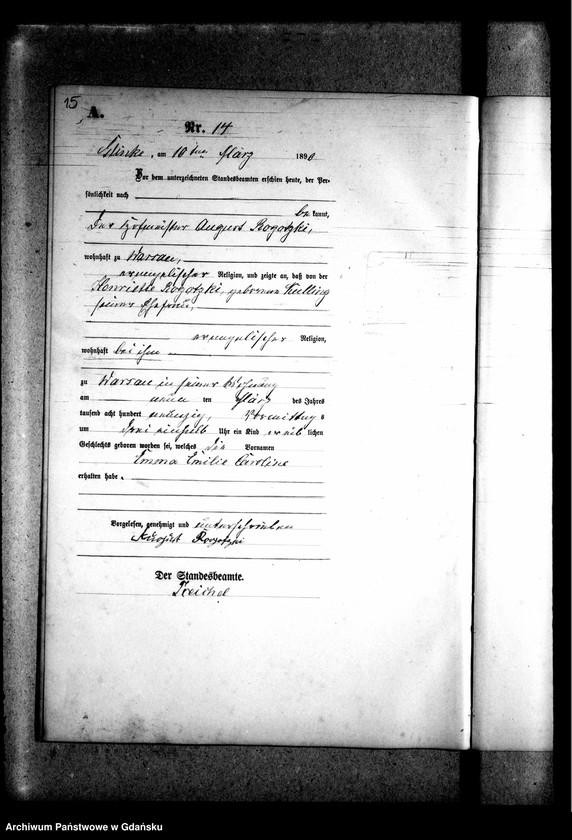 15
A.
Nr. 14
am 10 ten März 1890
Vor dem unterzeichneten Standesbeamten erschien heute, der Per-
sönlichkeit nach
be kannt,
Der Hofmeister August Rogotzki,
wohnhaft zu Warsau,
evangelischer Religion, und zeigte an, daß von der
Henriette Rogotzki, geborene Kulling
seiner Ehefrau,
evangelischer Religion,
wohnhaft bei ihm
zu Warsau in seiner Wohnung
am neun ten März des Jahres
tausend acht hundert neunzig, Vormittag s
um drei einhalb Uhr ein Kind weib lichen
Geschlechts geboren worden sei, welches die Vornamen
Emma Emilie Caroline
erhalten habe.
Vorgelesen, genehmigt und unterschrieben
August Rogotzki
Der Standesbeamte.
Treichel
Archiwum Państwowe w Gdańsku